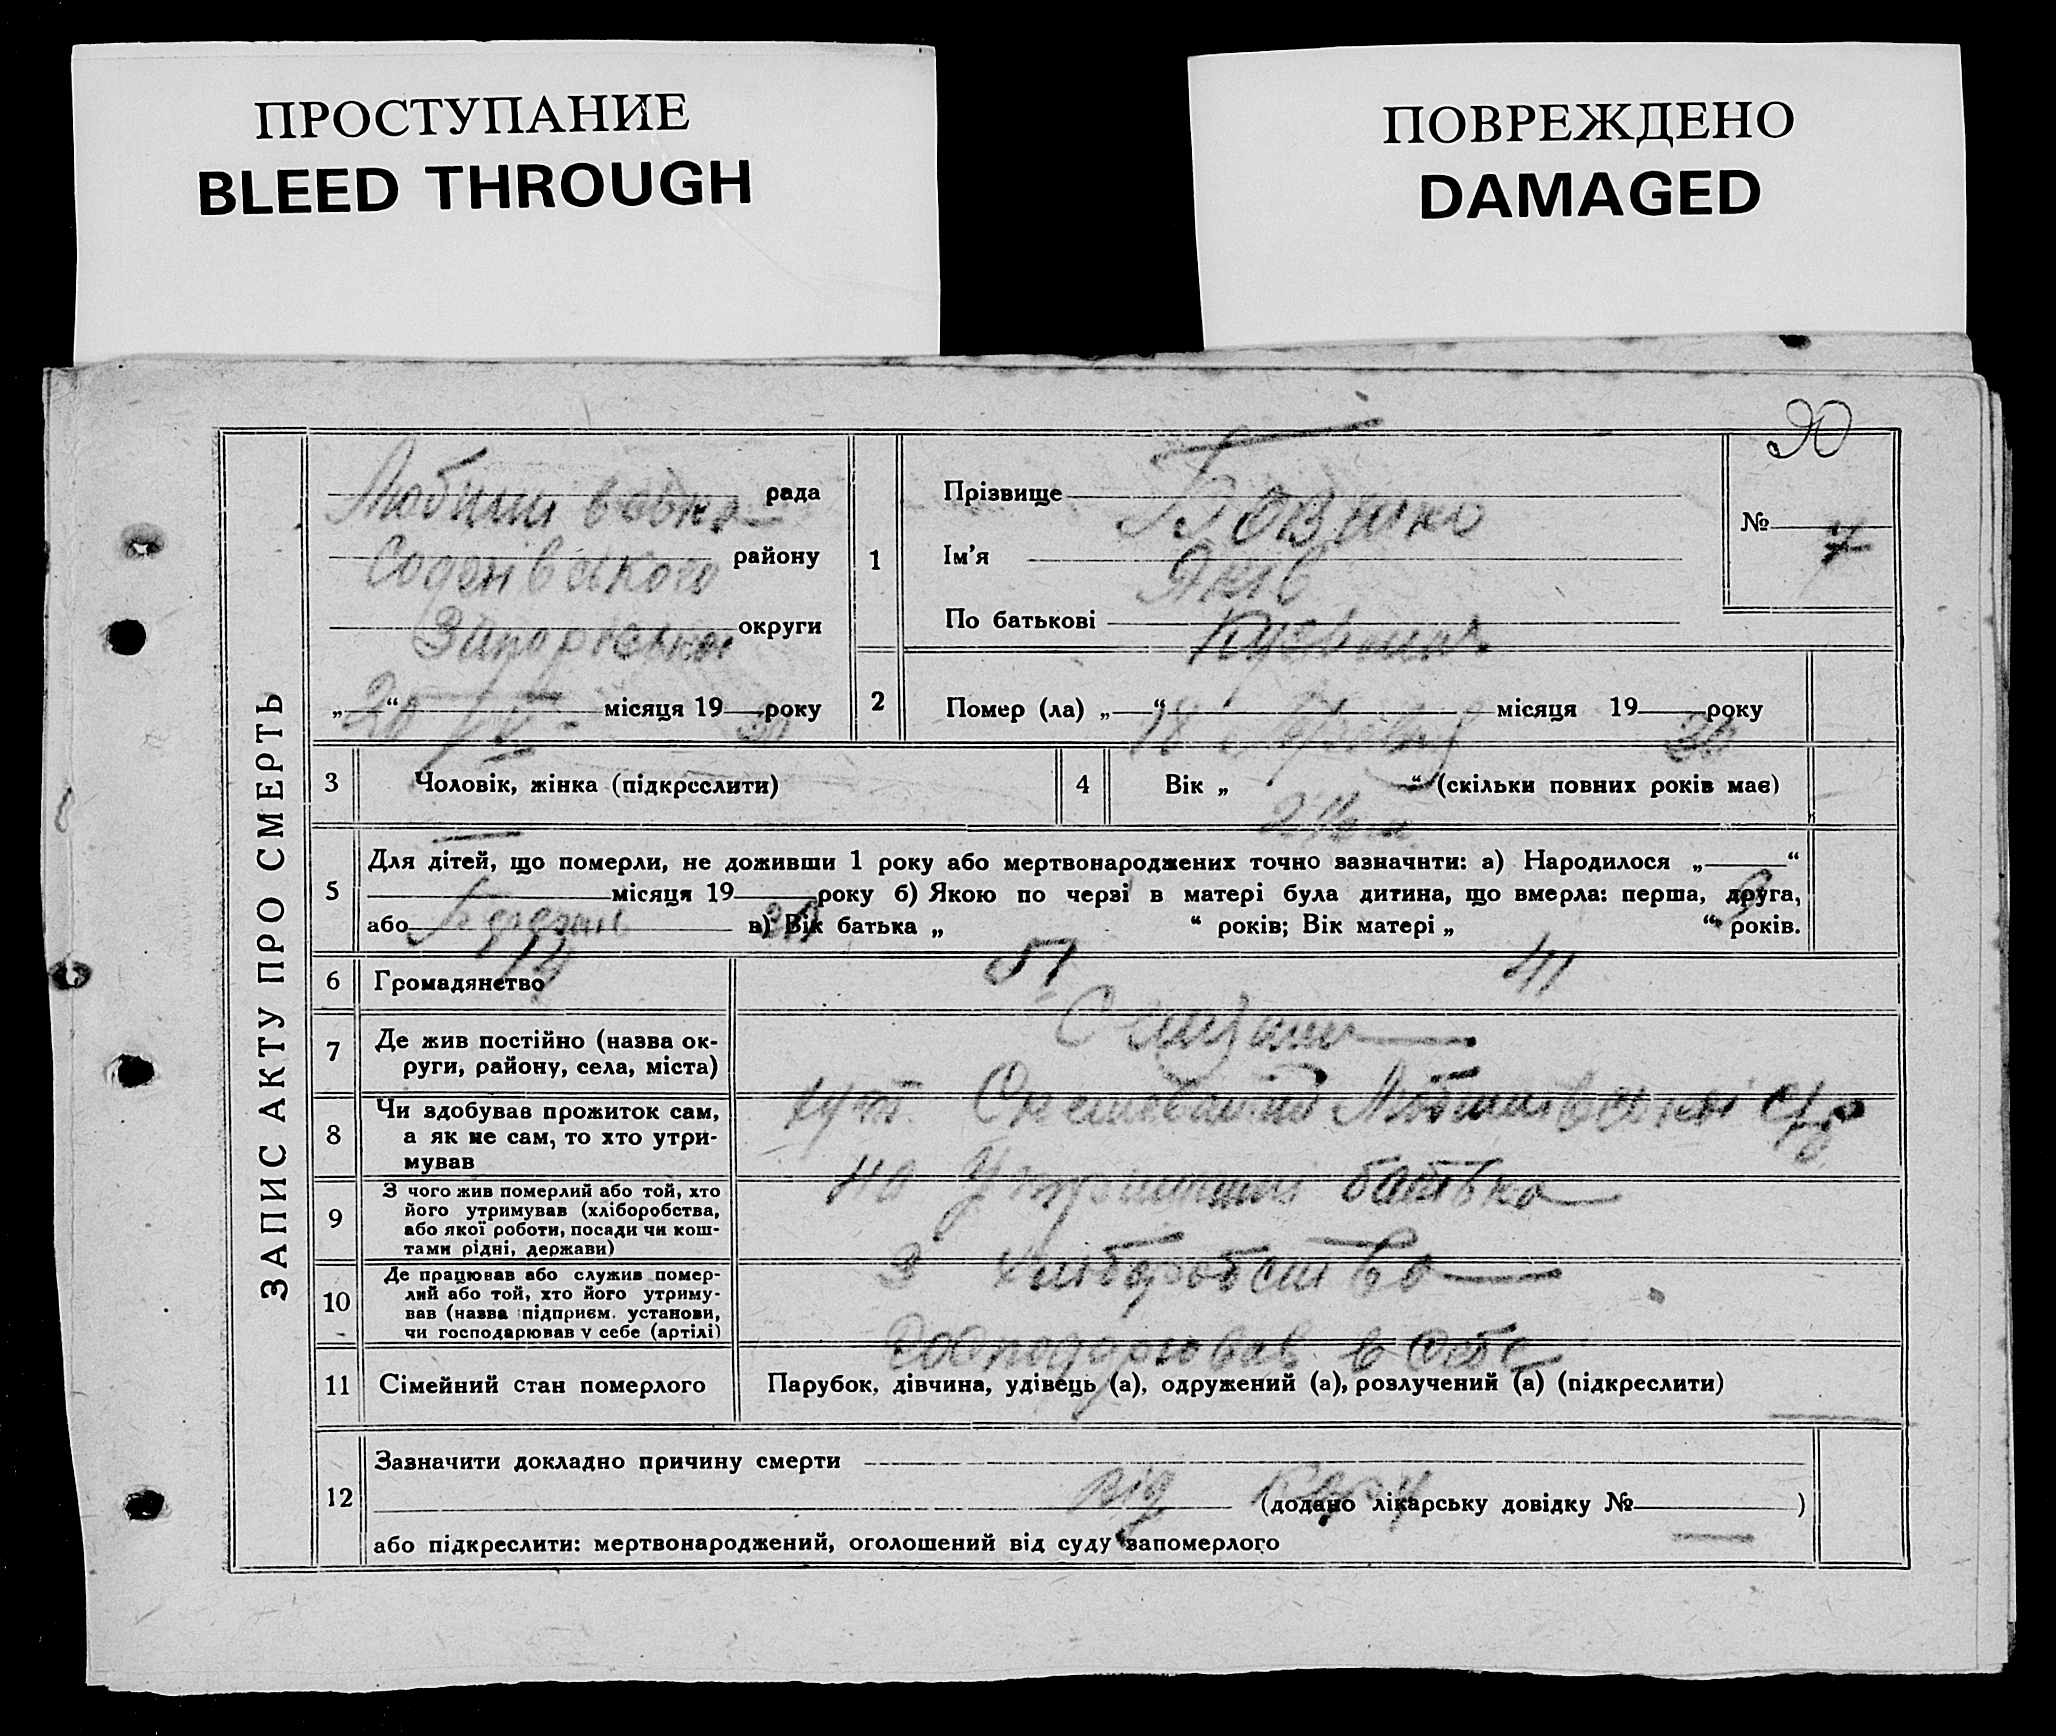 ПРОСТУПАНИЕ
BLEED THROUGH
ПОВРЕЖДЕНО
DAMAGED
90
ЗАПИС АКТУ ПРО СМЕРТЬ
рада
району
округи
Запорізької
„ 20 “ IV місяця 19 30 року
1
Прізвище
Ім’я Яків
По батькові
№ 7
2
Помер (ла) „ 18 “ місяця 19 30 року
3
Чоловік, жінка (підкреслити)
4
Вік „ “ (скільки повних років має)
5
Для дітей, що померли, не доживши 1 року або мертвонароджених точно зазначити: а) Народилося „ “
місяця 19 року б) Якою по черзі в матері була дитина, що вмерла: перша, друга,
або в) Вік батька „ 51 “ років; Вік матері „ 41 “ років.
6
Громадянство
7
Де жив постійно (назва ок-
руги, району, села, міста)
хут.
8
Чи здобував прожиток сам,
а як не сам, то хто утри-
мував
на утриманні батька
9
З чого жив померлий або той, хто
його утримував (хліборобства,
або якої роботи, посади чи кош-
тами рідні, держави)
З хліборобства
10
Де працював або служив помер-
лий або той, хто його утриму-
вав (назва підприєм. установи,
чи господарював у себе (артілі)
господарював в себе
11
Сімейний стан померлого
Парубок, дівчина, удівець (а), одружений (а), розлучений (а) (підкреслити)
12
Зазначити докладно причину смерти
від кору (додано лікарську довідку № )
або підкреслити: мертвонароджений, оголошений від суду запомерлого